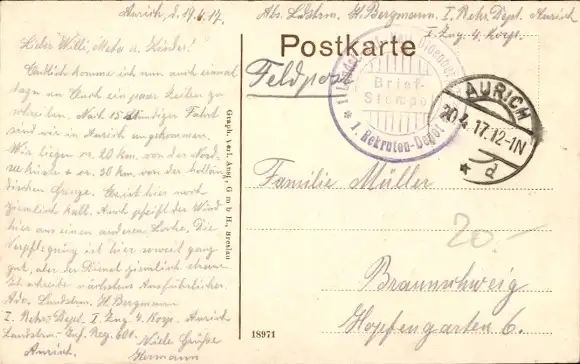 Aurich, d. 19.4.17.
Lieber Willi, Meta u. Kinder!
Endlich komme ich nun auch einmal
dazu an Euch ein paar Zeilen zu
schreiben. Nach 15 stündiger Fahrt
sind wir in Aurich angekommen.
Wir liegen ca. 20 km. von der Nord-
küste u. ca. 30 km. von der hollän-
dischen Grenze. Es ist hier noch
ziemlich kalt. Auch pfeift der Wind
hier aus einem anderen Loche. Die
Verpflegung ist hier soweit ganz
gut, aber der Dienst ziemlich stramm.
Schreibe nächstens Ausführlicher.
Adr. Landstrm. H. Bergmann
I. Rekr. Depot I Zug 4. Korp. Aurich
Landstrm. Inf. Reg. 601.
Aurich.
Viele Grüße
Hermann
Graph. Verl. Anst., G m b H., Breslau
Abs. Ldstrm. H. Bergmann. I. Rekr. Depot. Aurich
I. Zug 4. Korp.
Postkarte
Feldpost
Brief-
Stempel
* I. Rekruten-Depot *
AURICH
20.4.17.12-1N
* a
Familie Müller
20.-
Braunschweig
Hopfengarten 6.
18971